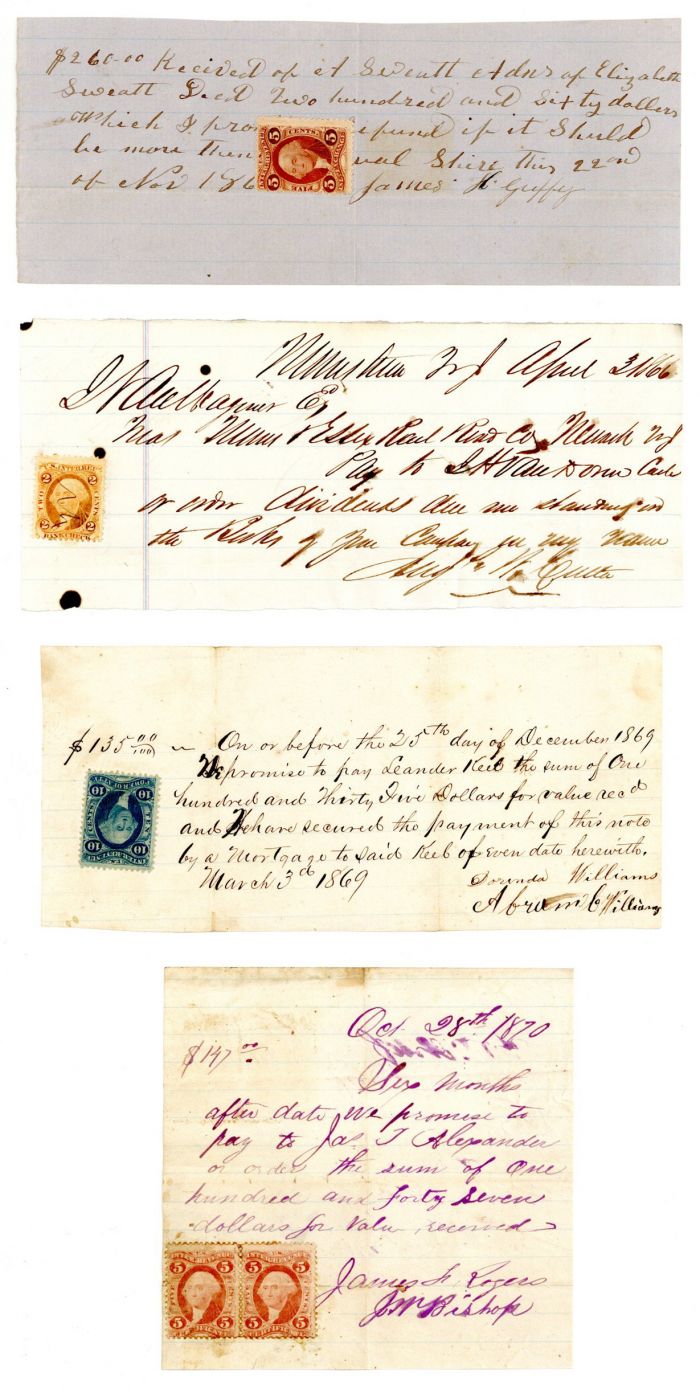 $260.00 Recived of A Sweatt Adnr of Elizabeth
Sweatt Decd Two hundred and Sixty dollars
Which I pro efund if it Should
be more then ual Shire this 22nd
of Nov 186 James H Guffy
5 CENTS 5
5 FIVE 5
April 3 1866
Esq
Treas Morris & Essex Rail Road Co Newark N J
Pay to J H Van Doren Cash
or order dividends due me standing on
the Books of your Company in my name
U.S. INTER. REV.
TWO 2 CENTS 2
BANK CHECK
$135 00/100 ~ On or before the 25th day of December 1869
We promise to pay Leander Keib the sum of One
hundred and Thirty Five Dollars for value recd
and We have secured the payment of this note
by a Mortgage to said Keib of Even date herewith.
March 3rd 1869 Dorinda Williams
Abram C Williams
10 CENTS 10
10 10
Oct 28th 1870
$147 00
Six Months
after date we promise to
pay to Jas T Alexander
or order the sum of One
hundred and forty seven
dollars for value received
James H. Rogers
J M Bishop
5 5 5 5
5 5 5 5